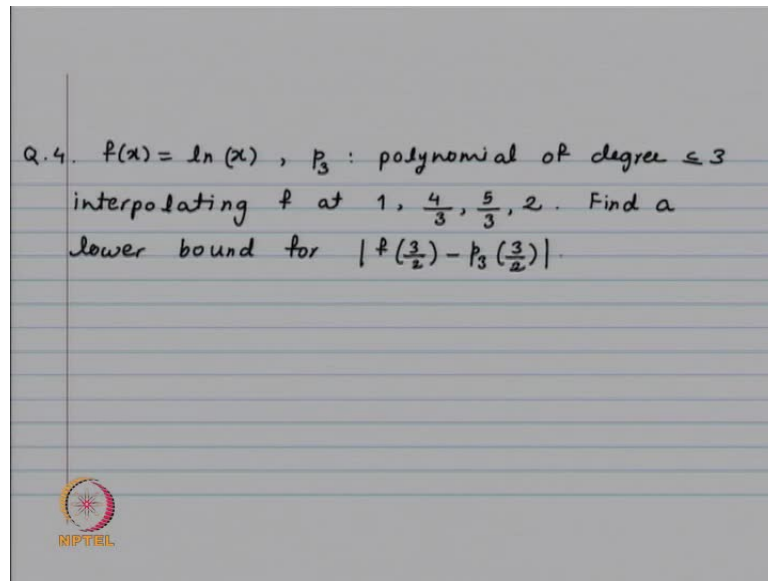 Q.4. f(x) = ln (x) , p₃ : polynomial of degree ≤ 3
interpolating f at 1, 4/3, 5/3, 2. Find a
lower bound for | f(3/2) - p₃(3/2) |.
NPTEL